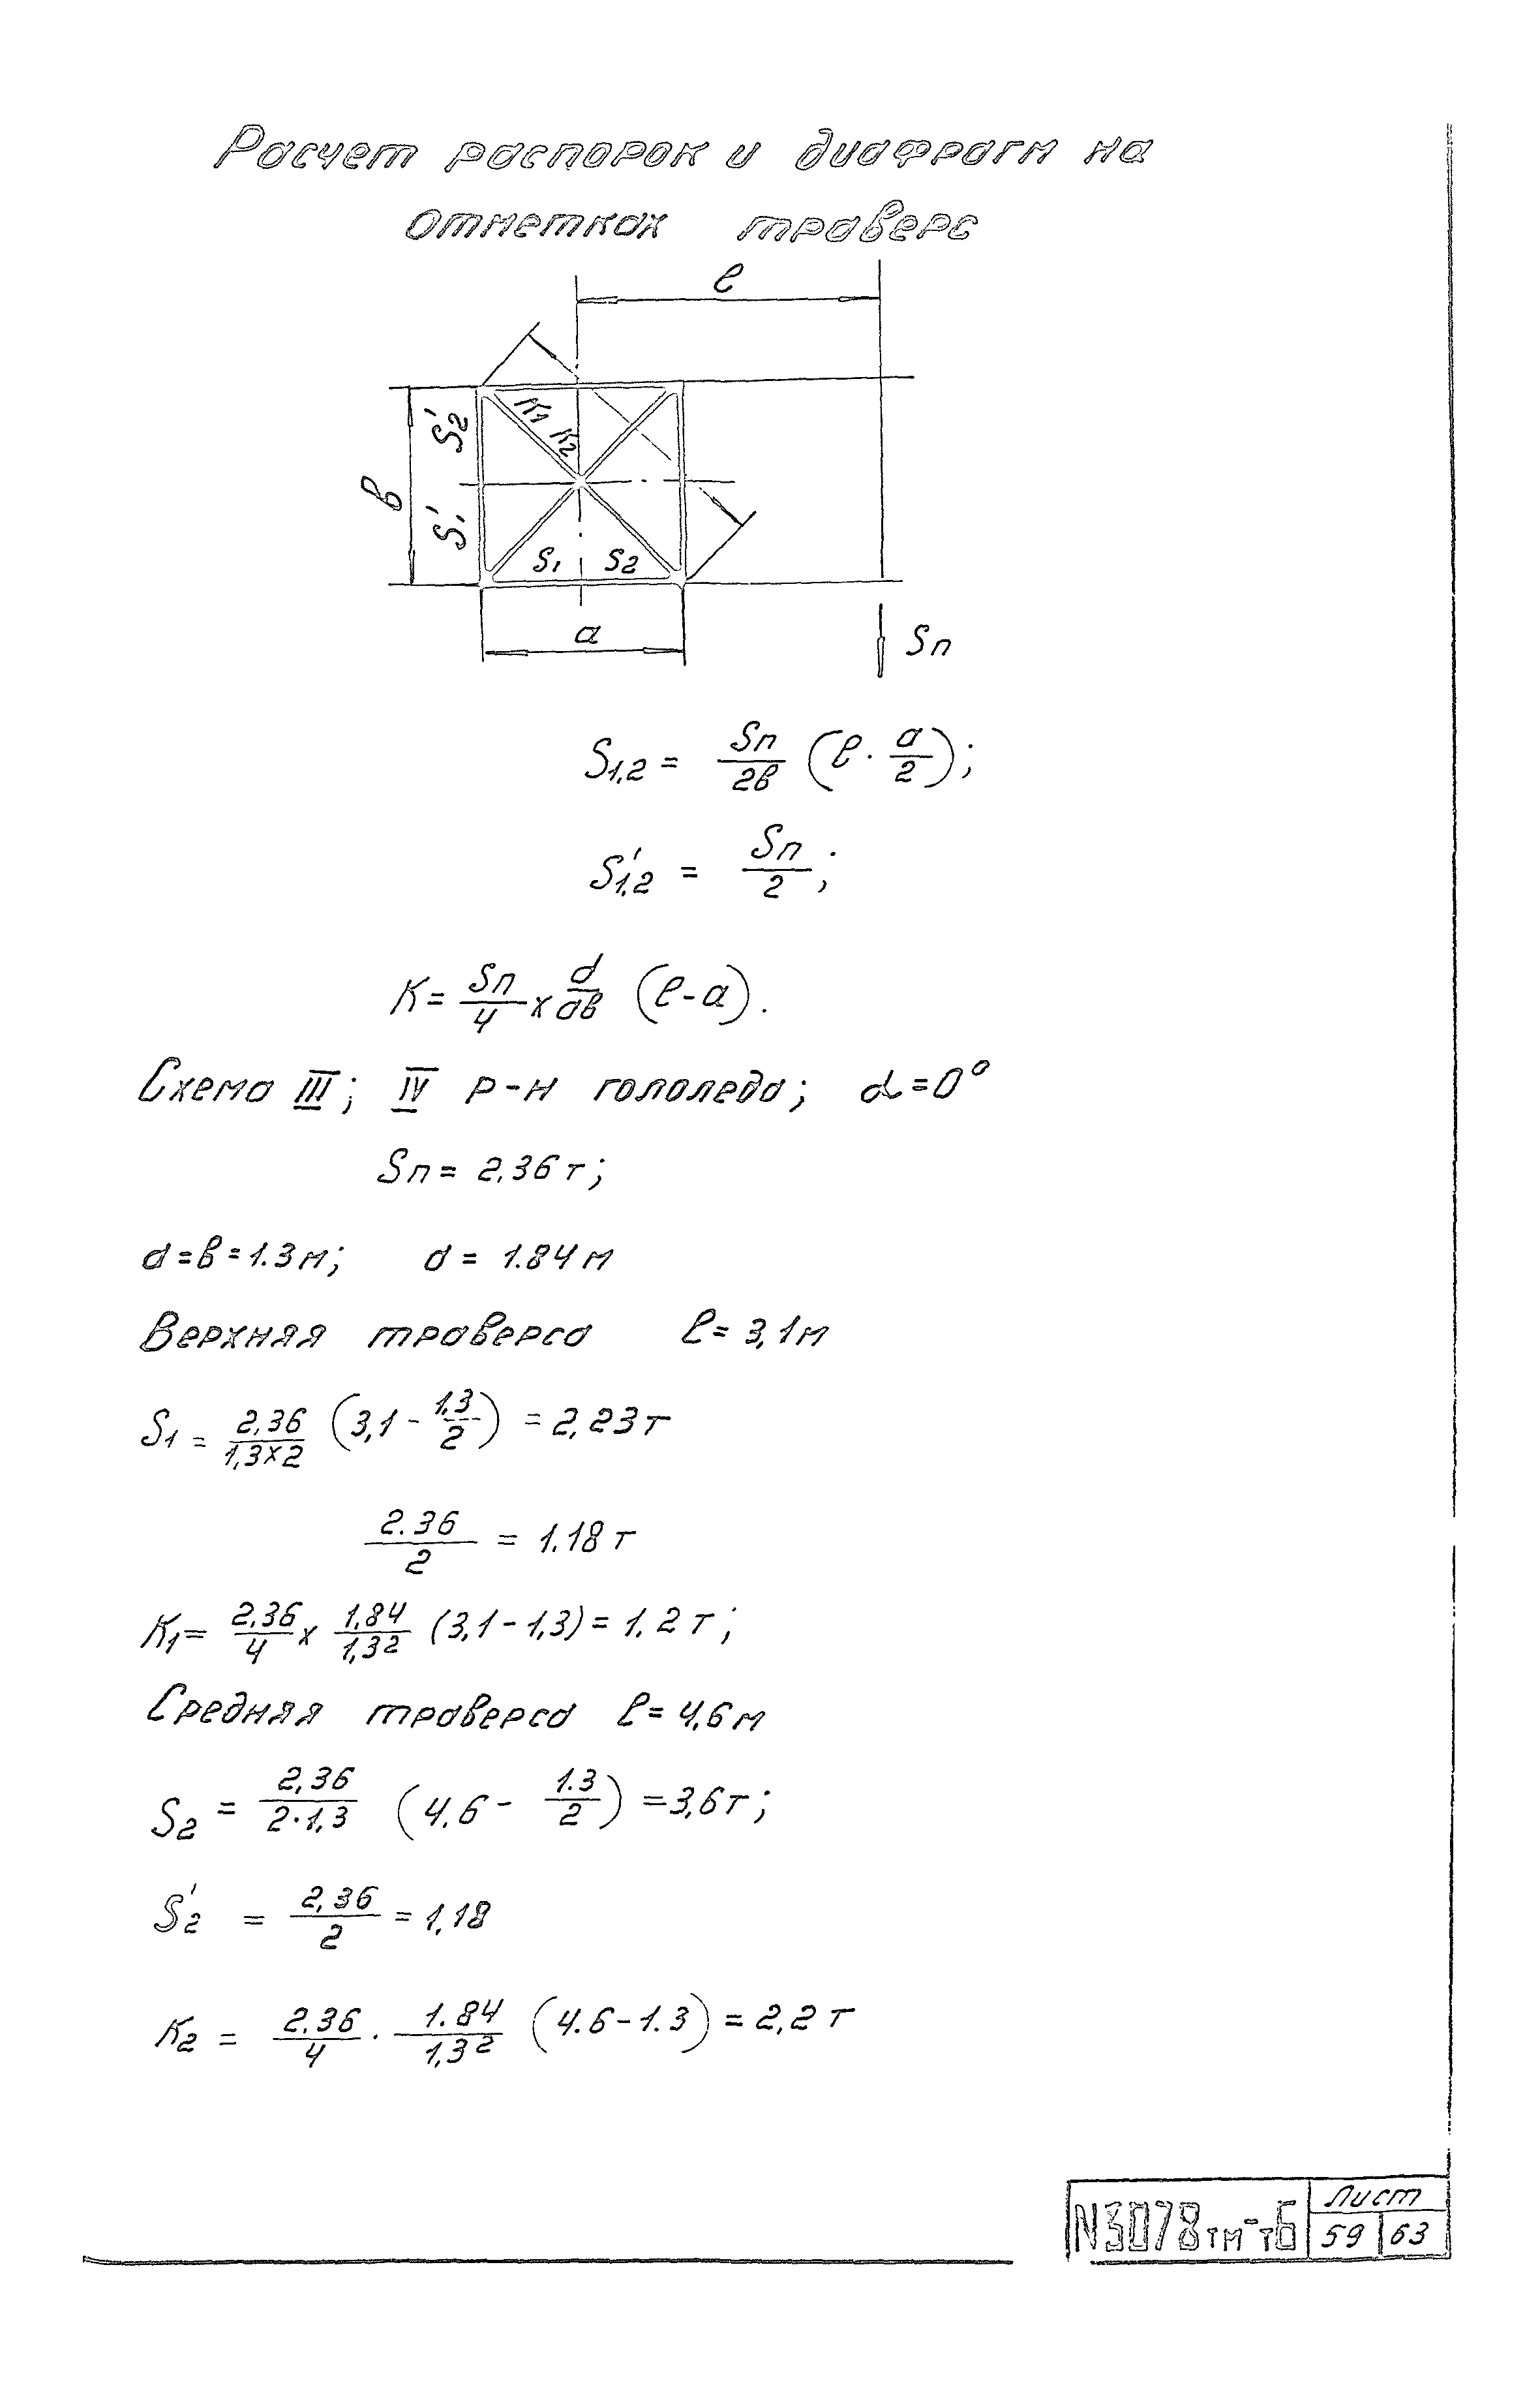 Расчет распорок и диафрагм на
отметках траверс
ℓ
K1 K2
S2'
в
S1'
S1 S2
a
Sп
S1,2 = Sп/2в (ℓ · a/2);
S'1,2 = Sп/2;
K = Sп/4 x d/ав (ℓ-a).
Схема III; IV р-н гололеда; α=0°
Sп = 2,36 т;
а=в=1.3м; d = 1.84 м
Верхняя траверса ℓ= 3,1м
S1 = 2,36/1,3x2 (3,1 - 1,3/2) = 2,23т
2.36/2 = 1.18 т
K1= 2,36/4 x 1,84/1,3² (3,1-1,3)= 1.2 т;
Средняя траверса ℓ= 4,6м
S2 = 2,36/2·1,3 (4.6 - 1.3/2) =3,6т;
S2' = 2,36/2 = 1,18
K2 = 2.36/4 · 1.84/1,3² (4.6-1.3) = 2,2 т
N3078тм-т6
Лист
59 63